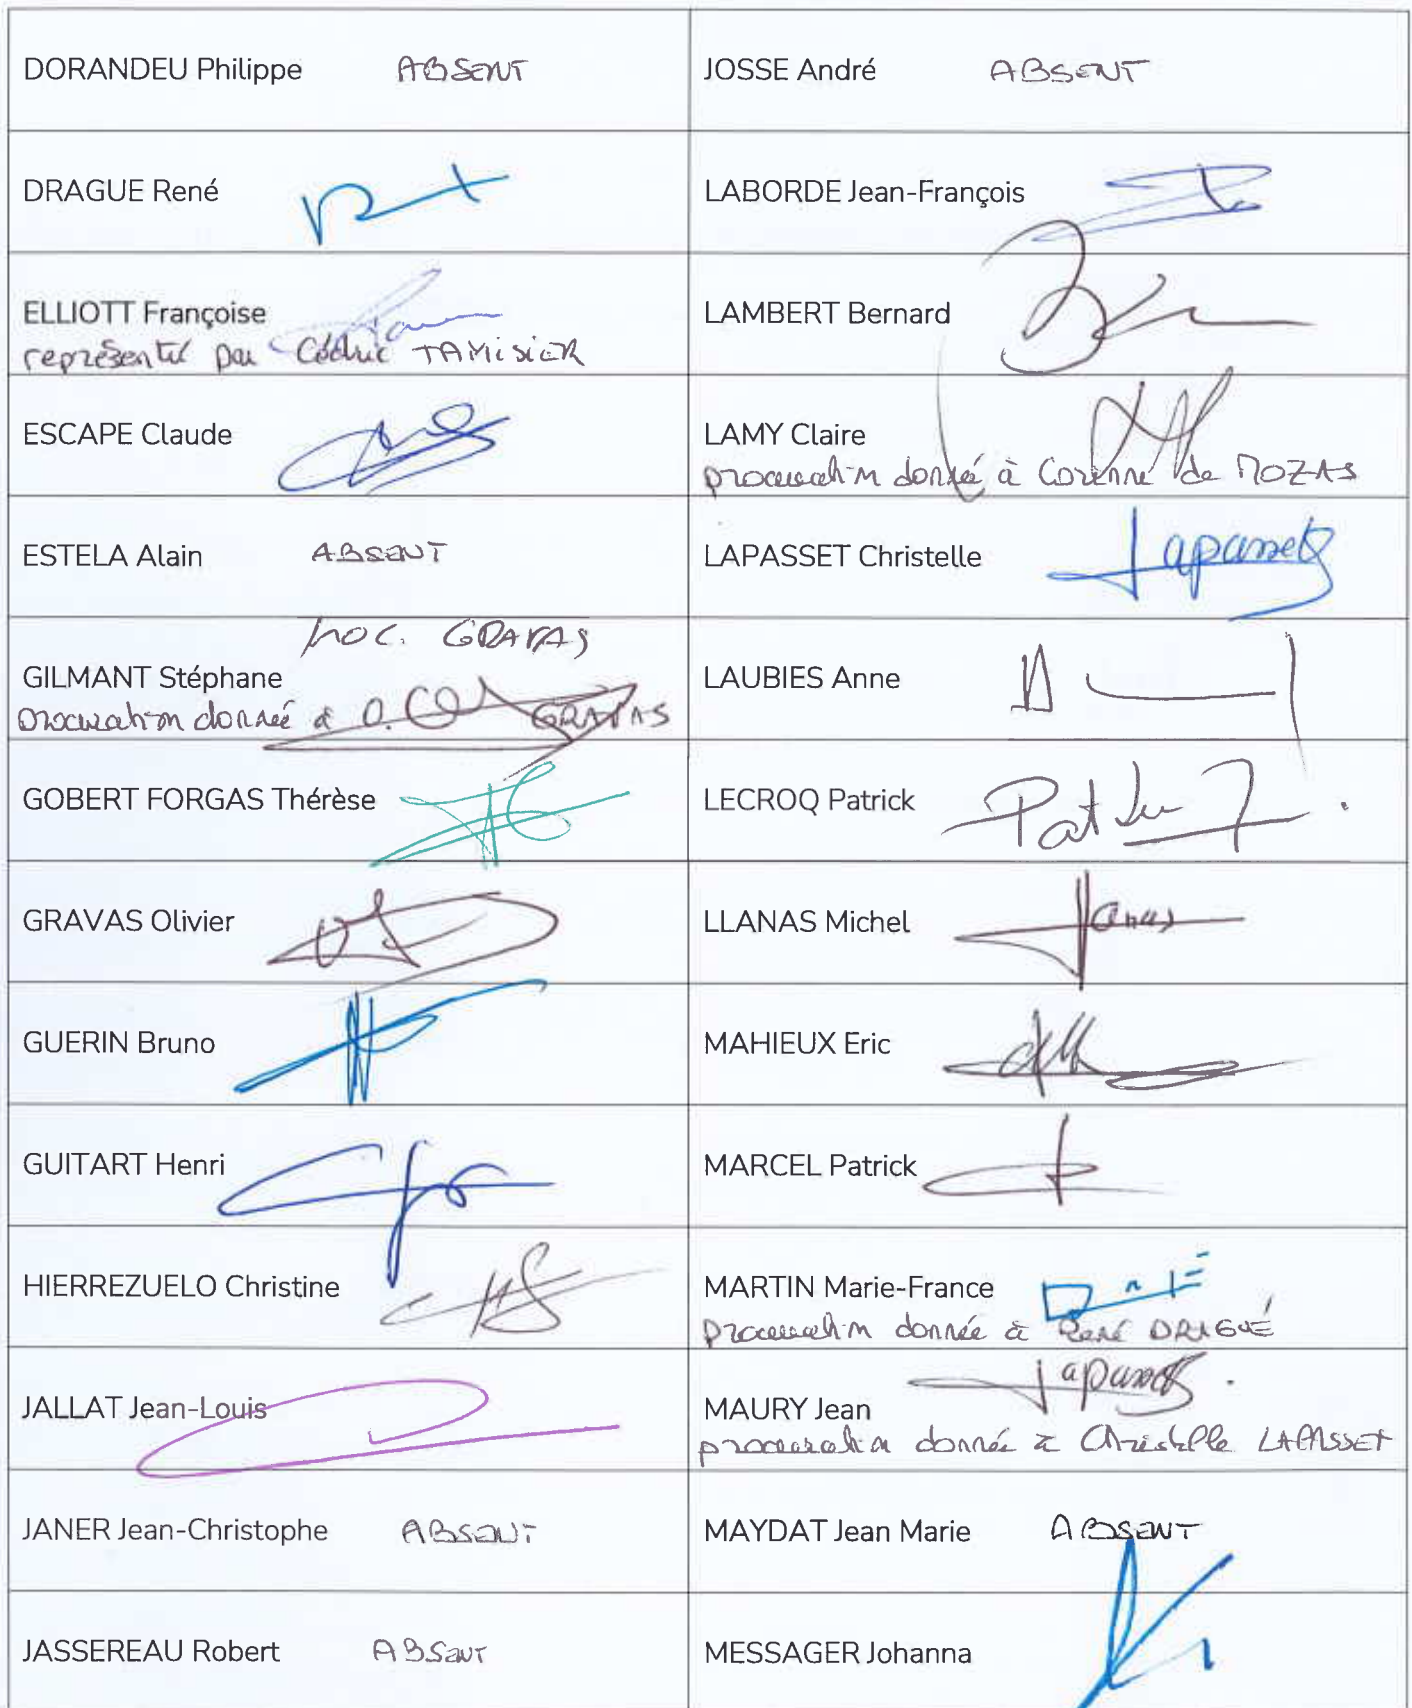 DORANDEU Philippe ABSENT
JOSSE André ABSENT
DRAGUE René
LABORDE Jean-François
ELLIOTT Françoise
représenté par Cédric TAMISIER
LAMBERT Bernard
ESCAPE Claude
LAMY Claire
procuration donnée à Corinne de ROZAS
ESTELA Alain ABSENT
LAPASSET Christelle Lapasset
proc. GRAVAS
GILMANT Stéphane
procuration donnée à O. GRAVAS
LAUBIES Anne
GOBERT FORGAS Thérèse
LECROQ Patrick
GRAVAS Olivier
LLANAS Michel Llanas
GUERIN Bruno
MAHIEUX Eric
GUITART Henri
MARCEL Patrick
HIERREZUELO Christine
MARTIN Marie-France
procuration donnée à René DRAGUÉ
JALLAT Jean-Louis
Lapasset
MAURY Jean
procuration donnée à Christelle LAPASSET
JANER Jean-Christophe ABSENT
MAYDAT Jean Marie ABSENT
JASSEREAU Robert ABSENT
MESSAGER Johanna